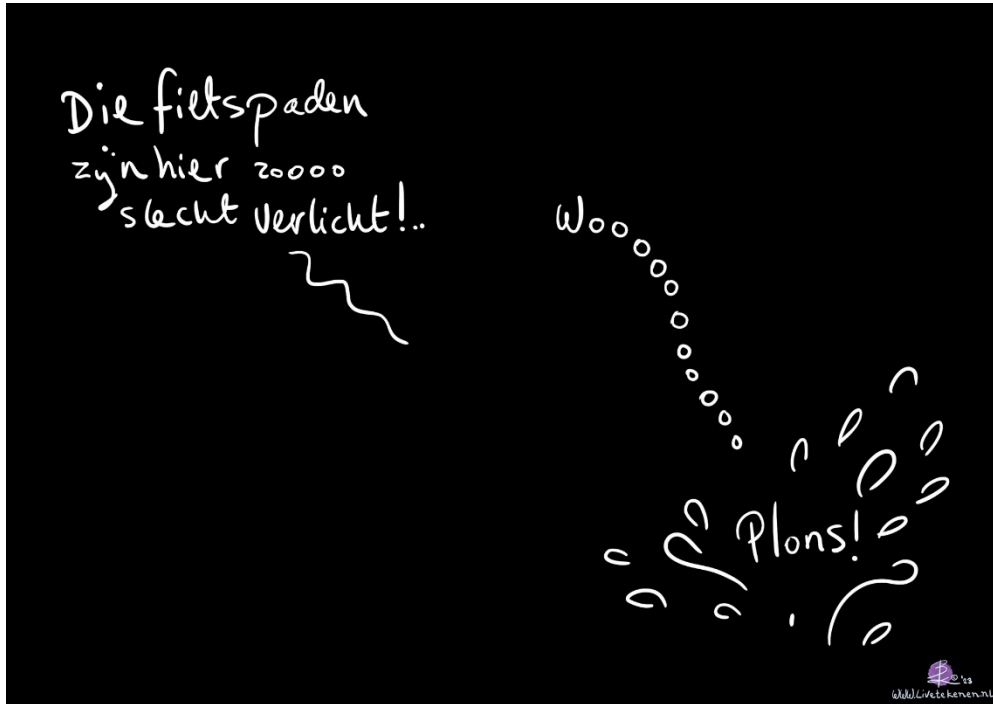 Die fietspaden
zijn hier zoooo
slecht verlicht!..
Wooooooooooooo
Plons!
©'23
www.Livetekenen.nl